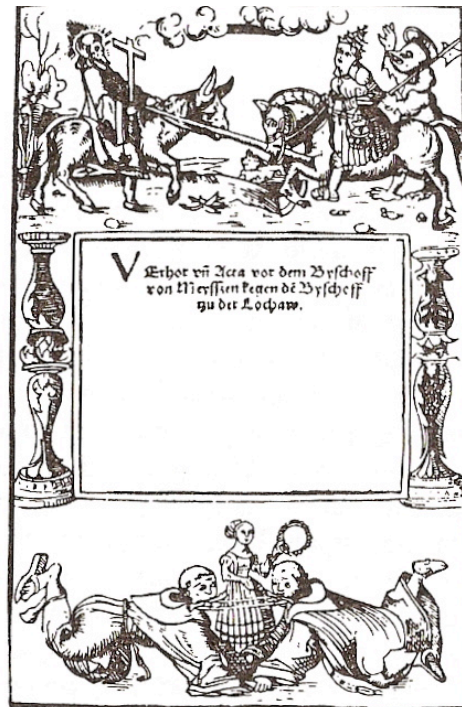 VErhor vñ Acta vor dem Byschoff
von Meyssen kegen dē Byscheff
tzu der Lochaw.